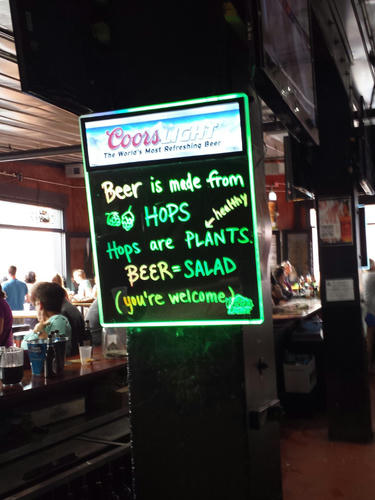 Coors LIGHT
The World's Most Refreshing Beer
Beer is made from
HOPS
healthy
Hops are PLANTS.
BEER=SALAD
(you're welcome)